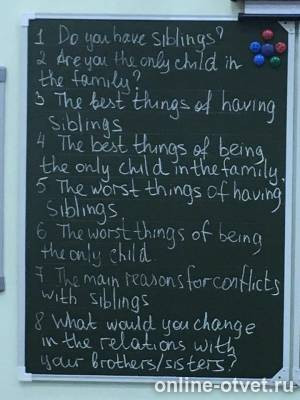 1 Do you have siblings?
2 Are you the only child in
the family?
3 The best things of having
siblings
4 The best things of being
the only child in the family.
5 The worst things of having
siblings
6 The worst things of being
the only child.
7 The main reasons for conflicts
with siblings
8 What would you change
in the relations with
your brothers/sisters?
online-otvet.ru